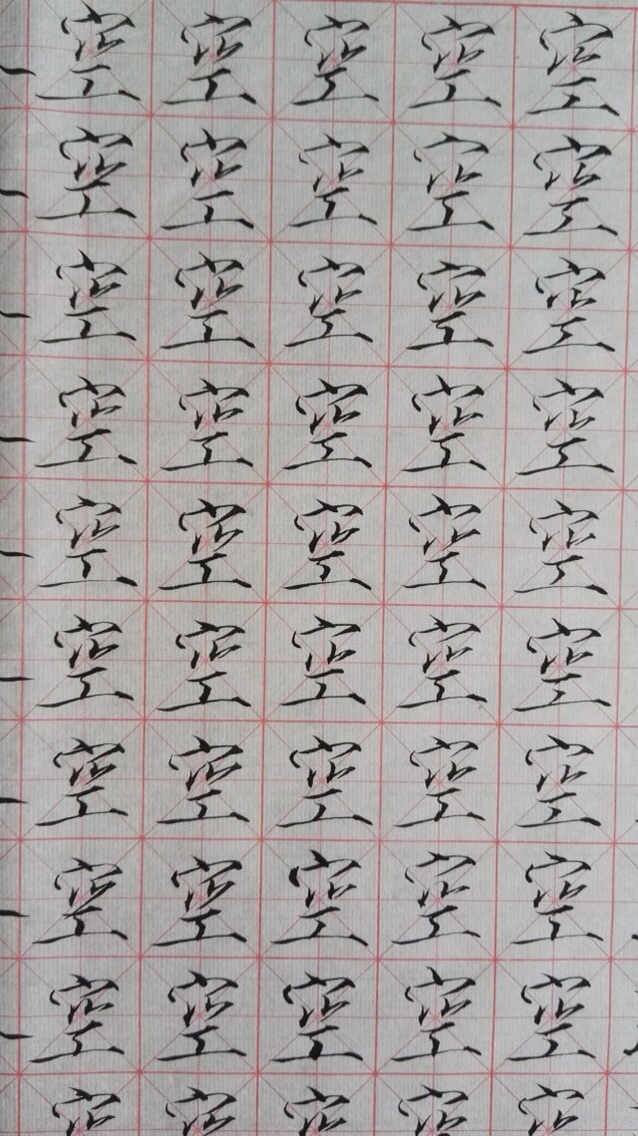 空 空 空 空 空
空 空 空 空 空
空 空 空 空 空
空 空 空 空 空
空 空 空 空 空
空 空 空 空 空
空 空 空 空 空
空 空 空 空 空
空 空 空 空 空